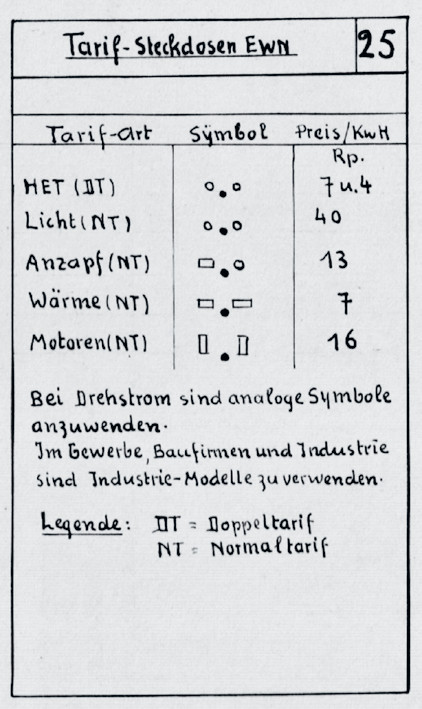 Tarif-Steckdosen EWN 25
Tarif-Art Symbol Preis/KwH
Rp.
HET (DT) 7 u. 4
Licht (NT) 40
Anzapf (NT) 13
Wärme (NT) 7
Motoren (NT) 16
Bei Drehstrom sind analoge Symbole
anzuwenden.
Im Gewerbe, Baufirmen und Industrie
sind Industrie-Modelle zu verwenden.
Legende: DT = Doppeltarif
NT = Normaltarif